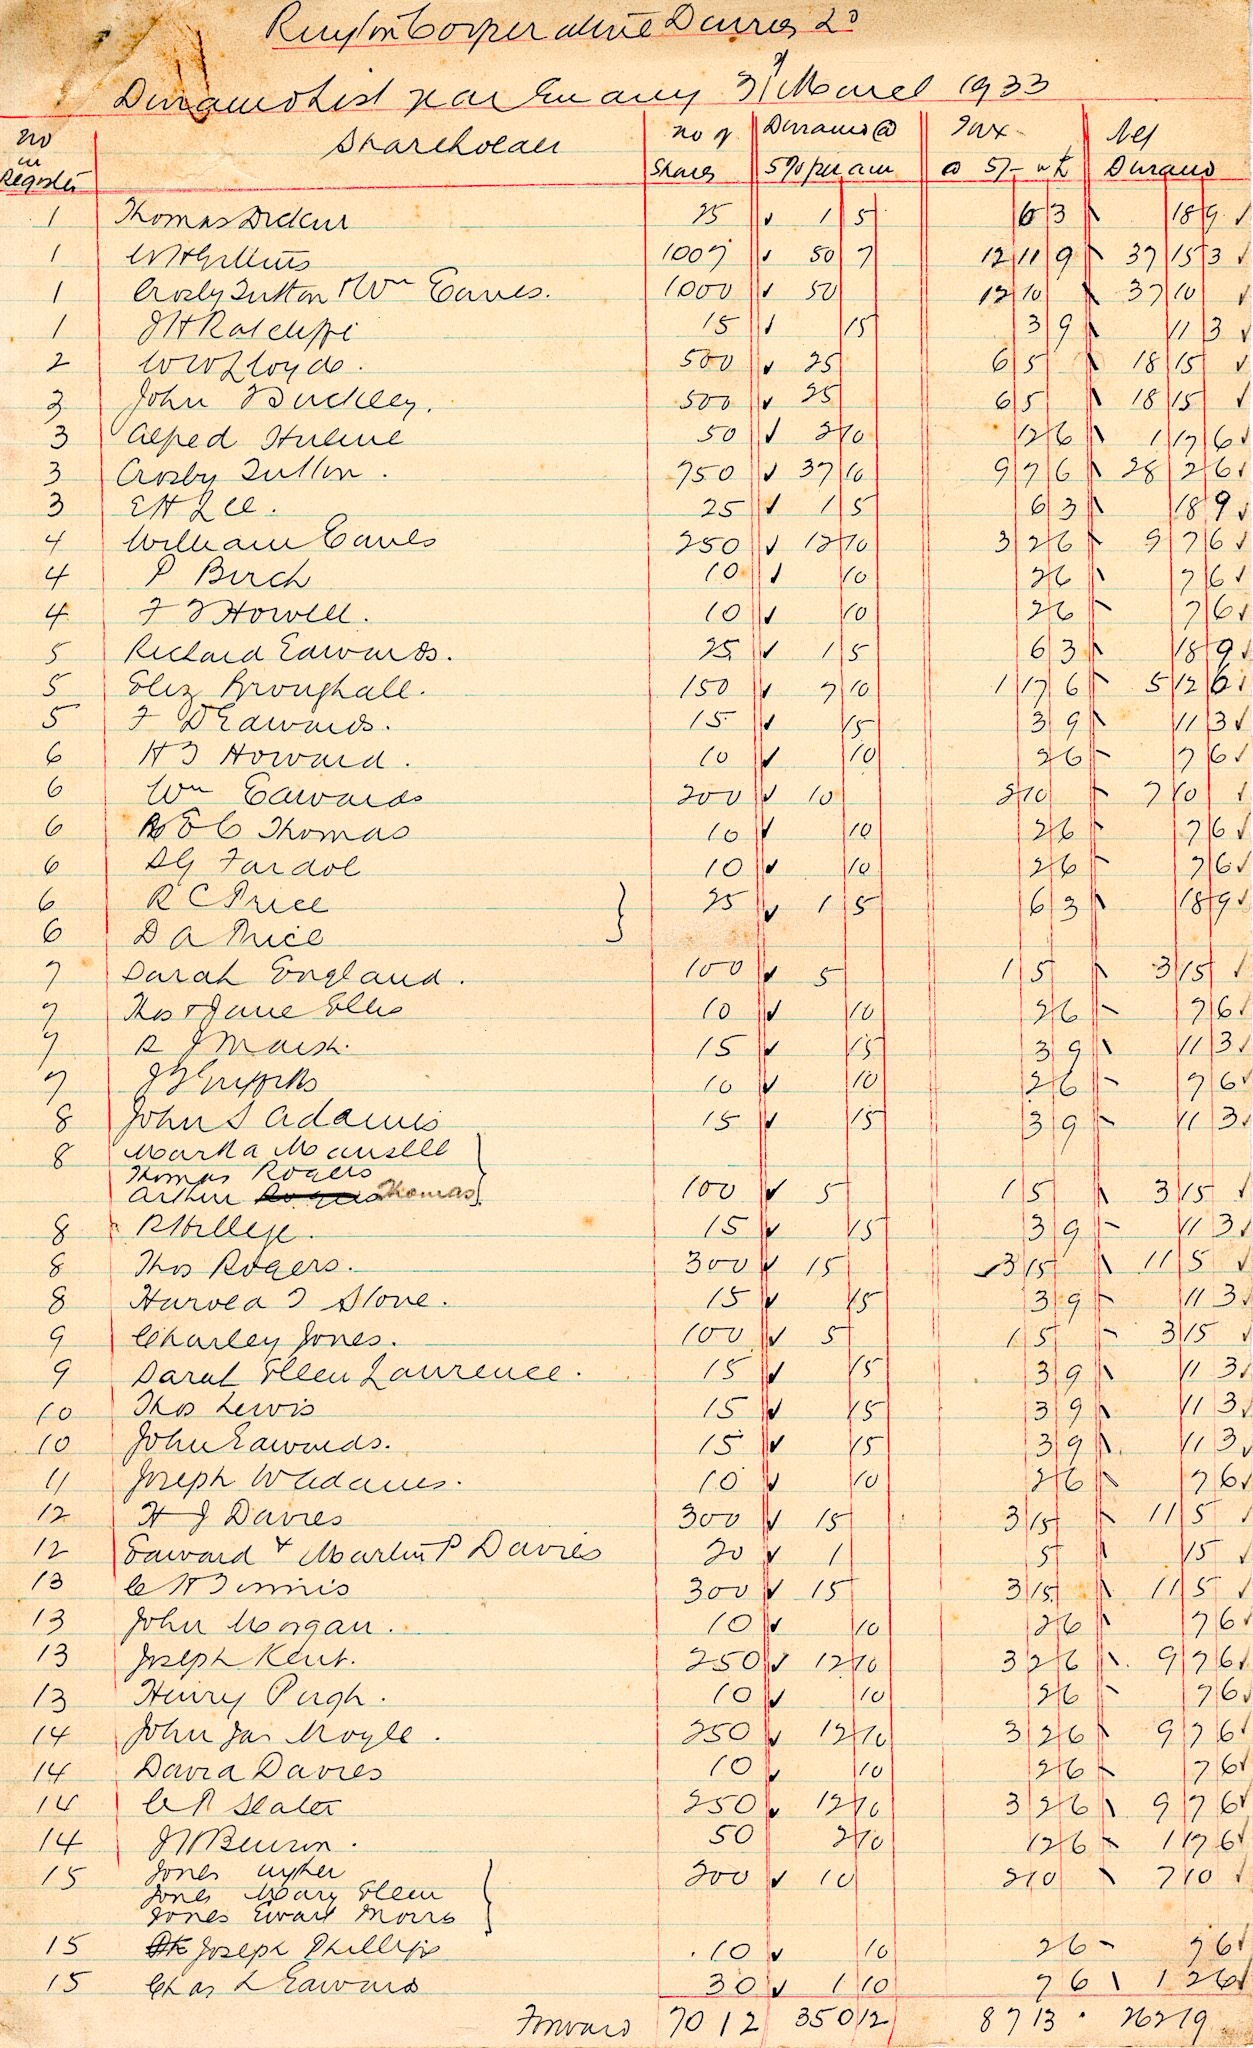 Ruyton Cooperative Dairies Ld
Dividend List year Ending 31st March 1933
no in Register Shareholder no of Shares Dividend @ 5% per ann Tax @ 5/- in £ Net Dividend
1 Thomas Dickin 25 1 5 6 3 18 9
1 1007 50 7 12 11 9 37 15 3
1 Crosby Sutton & Wm Eaves. 1000 50 12 10 37 10
1 J H Ratcliffe 15 15 3 9 11 3
2 W W Lloyd. 500 25 6 5 18 15
3 John Buckley. 500 25 6 5 18 15
3 Alfred Hulme 50 2 10 12 6 1 17 6
3 Crosby Sutton. 750 37 10 9 7 6 28 2 6
3 E H Lee. 25 1 5 6 3 18 9
4 William Eaves 250 12 10 3 2 6 9 7 6
4 P Birch 10 10 2 6 7 6
4 F J Howell. 10 10 2 6 7 6
5 Richard Edwards. 25 1 5 6 3 18 9
5 Eliz Broughall. 150 7 10 1 17 6 5 12 6
5 F D Edwards. 15 15 3 9 11 3
6 H J Howard. 10 10 2 6 7 6
6 Wm Edwards 200 10 2 10 7 10
6 Thomas 10 10 2 6 7 6
6 10 10 2 6 7 6
6 R C Price } 25 1 5 6 3 18 9
6 D A Price
7 Sarah England. 100 5 1 5 3 15
7 Thos & Jane Ellis 10 10 2 6 7 6
7 R J Marsh. 15 15 3 9 11 3
7 J Griffiths 10 10 2 6 7 6
8 John S Adams 15 15 3 9 11 3
8 Martha Mansell }
Thomas Rogers
Arthur Rogers Thomas 100 5 1 5 3 15
8 15 15 3 9 11 3
8 Thos Rogers. 300 15 3 15 11 5
8 Harold J Stone. 15 15 3 9 11 3
9 Charley Jones. 100 5 1 5 3 15
9 Sarah Ellen Lawrence. 15 15 3 9 11 3
10 Thos Lewis 15 15 3 9 11 3
10 John Edwards. 15 15 3 9 11 3
11 Joseph W Adams. 10 10 2 6 7 6
12 H J Davies 300 15 3 15 11 5
12 Edward & Martin P Davies 20 1 5 15
13 300 15 3 15 11 5
13 John Morgan. 10 10 2 6 7 6
13 Joseph Kent. 250 12 10 3 2 6 9 7 6
13 Henry Pugh. 10 10 2 6 7 6
14 John Jas Moyle. 250 12 10 3 2 6 9 7 6
14 David Davies 10 10 2 6 7 6
14 Slater 250 12 10 3 2 6 9 7 6
14 50 2 10 12 6 1 17 6
15 Jones } 200 10 2 10 7 10
Jones Mary Ellen
Jones Ewart Morris
15 Joseph Phillips 10 10 2 6 7 6
15 Chas L Edwards 30 1 10 7 6 1 2 6
Forward 7012 350 12 87 13 262 19